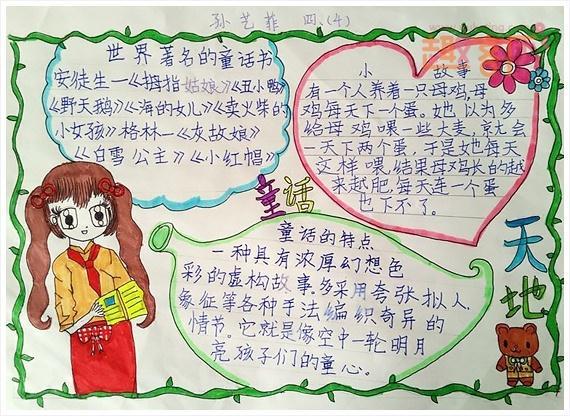 孙艺菲 四.(4)
世界著名的童话书
安徒生—《拇指姑娘》《丑小鸭》
《野天鹅》《海的女儿》《卖火柴的
小女孩》格林—《灰故娘》
《白雪公主》《小红帽》
小 故事
有一个人养着一只母鸡,母
鸡每天下一个蛋。她以为多
给母鸡喂一些大麦,就会
一天下两个蛋,于是她每天
这样喂,结果母鸡长的越
来越肥,每天连一个蛋
也下不了。
童话
天地
童话的特点
一种具有浓厚幻想色
彩的虚构故事,多采用夸张、拟人、
象征等各种手法编织奇异的
情节。它就是像空中一轮明月
亮孩子们的童心。